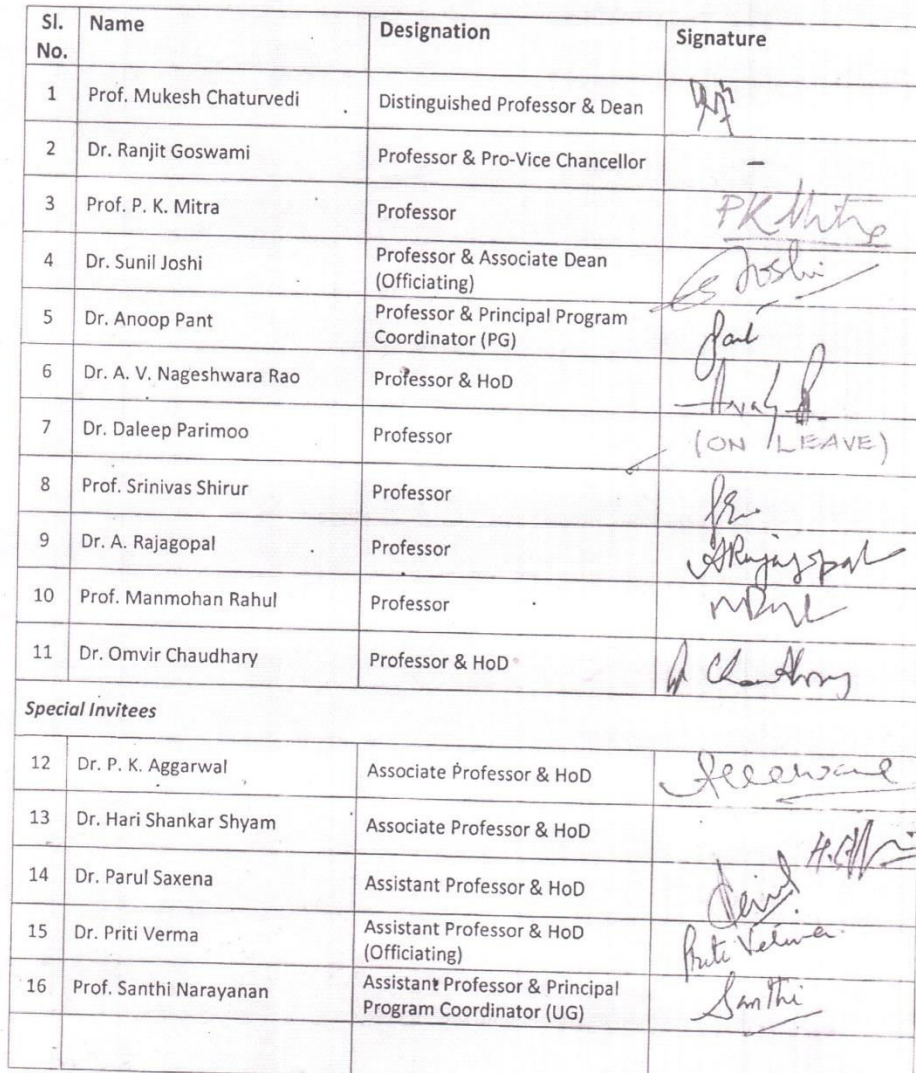 Sl. No. Name Designation Signature
1 Prof. Mukesh Chaturvedi Distinguished Professor & Dean
2 Dr. Ranjit Goswami Professor & Pro-Vice Chancellor -
3 Prof. P. K. Mitra Professor PK Mitra
4 Dr. Sunil Joshi Professor & Associate Dean (Officiating) Joshi
5 Dr. Anoop Pant Professor & Principal Program Coordinator (PG)
6 Dr. A. V. Nageshwara Rao Professor & HoD
7 Dr. Daleep Parimoo Professor (ON LEAVE)
8 Prof. Srinivas Shirur Professor
9 Dr. A. Rajagopal Professor ARajagopal
10 Prof. Manmohan Rahul Professor
11 Dr. Omvir Chaudhary Professor & HoD
Special Invitees
12 Dr. P. K. Aggarwal Associate Professor & HoD
13 Dr. Hari Shankar Shyam Associate Professor & HoD
14 Dr. Parul Saxena Assistant Professor & HoD
15 Dr. Priti Verma Assistant Professor & HoD (Officiating) Priti Verma
16 Prof. Santhi Narayanan Assistant Professor & Principal Program Coordinator (UG) Santhi